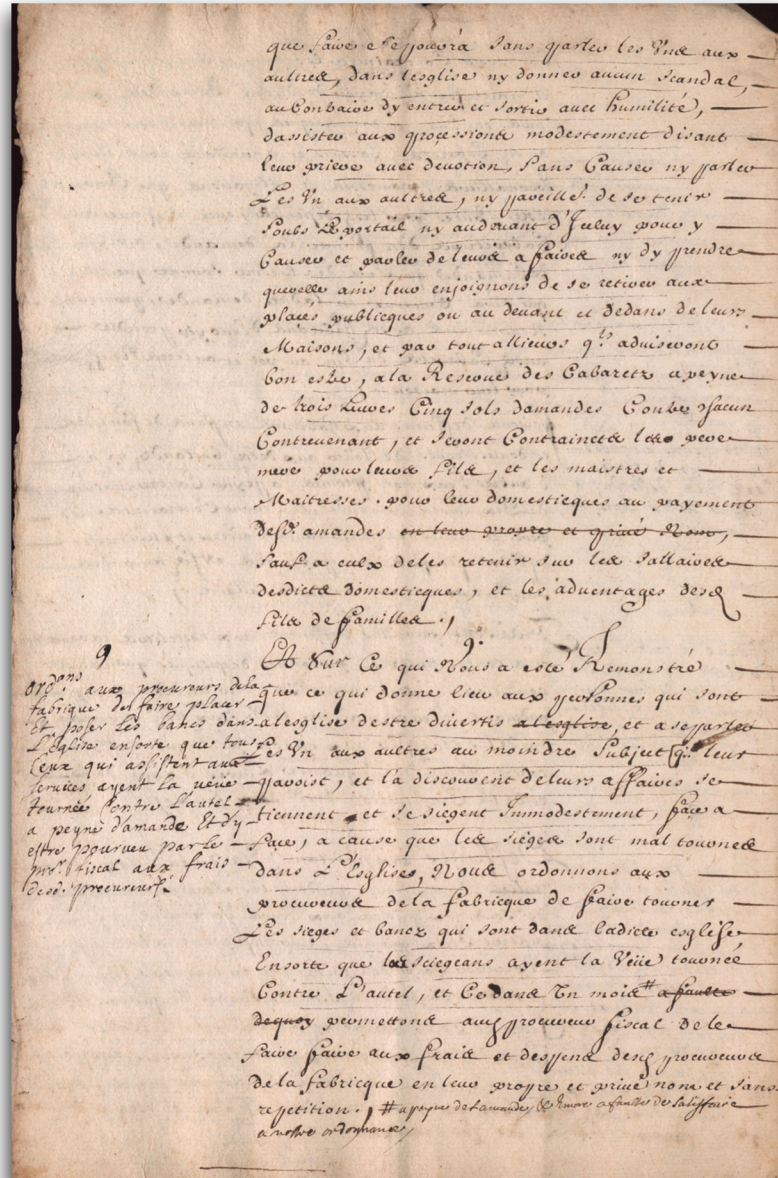 que faire ce se pourra sans parler les Uns aux
aultres, dans lesglise ny donner aucun scandal,
au Contraire dy entrer et sortir avec humilité,
dassister aux processions modestement disant
leur priere avec devotion, sans Causer ny parler
Les Un aux aultres, ny pareillemt de se tenir
soubs Le portail ny audevant d'Iceluy pour y
Causer et parler de leurs affaires ny dy prendre
querelle ains leur enjoignons de se retirer aux
places publicques ou au devant et dedans de leurs
Maisons, et par tout allieurs qls adviseront
bon estre, a la Reserve des Cabaretz a peyne
de trois Livres Cinq sols damandes Contre chacun
Contrevenant, et seront Contrainctz les pere
mere pour leurs fils, et les maistres et
Maitresses pour leur domesticques au payement
desd. amandes en leur propre et privé Nom,
sauf a eulx de les retenir sur les sallaires
desdicts domesticques, et les adventages desd
fils de familles.,
9.
Et Sur Ce qui Nous a esté Remonstré
que ce qui donne lieu aux personnes qui sont
a lesglise destre divertis a lesglise, et a se parler
Les Un aux aultres au moindre Subject q. leur
paroist, et la discourent de leurs affaires se
tiennent et se siegent Immodestement, face a
face, a cause que les sieges sont mal tournes
dans L'Esglise, Nous ordonnons aux
procureurs de la fabricque de faire tourner
Les sieges et bancz qui sont dans ladicte esglise
Ensorte que les sciegeans ayent la Veüe tournée
Contre L'autel, et Ce dans Un mois # a faulte
dequoy permettons au procureur fiscal de le
faire faire aux fraiz et despens des procureurs
de la fabricque en leur propre et privé nom et sans
repetition., # a peyne de Lamande, & a faulte de satisfaire
a nostre ordonnance,
9
ordans aux procureurs de la
fabrique de faire placer
Et poser les bancs dans
L'eglise ensorte que tous
Ceux qui assistent aux
services ayent la veüe
tournée Contre L'autel
a peyne d'amande Et dy
estre pourveu par le
pr. fiscal aux frais
desd. procureurs.